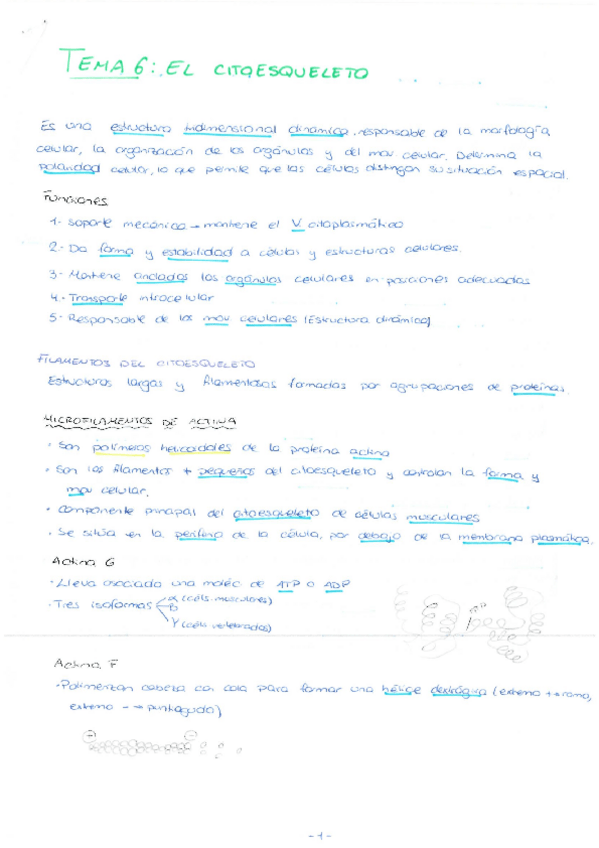 TEMA 6: EL CITOESQUELETO
Es una estructura tridimensional dinámica responsable de la morfología
celular, la organización de los orgánulos y del mov celular. Determina la
polaridad celular, lo que permite que las células distingan su situación espacial.
Funciones
1- Soporte mecánico → mantiene el V citoplasmático
2- Da forma y estabilidad a células y estructuras celulares.
3- Mantiene anclados los orgánulos celulares en posiciones adecuadas
4- Transporte intracelular
5- Responsable de los mov celulares (Estructura dinámica)
FILAMENTOS DEL CITOESQUELETO
Estructuras largas y filamentosas formadas por agrupaciones de proteínas.
MICROFILAMENTOS DE ACTINA
· Son polímeros helicoidales de la proteína actina
· Son los filamentos + pequeños del citoesqueleto y controlan la forma y
mov celular.
· Componente principal del citoesqueleto de células musculares
· Se sitúa en la periferia de la célula, por debajo de la membrana plasmática.
Actina G
· Lleva asociada una moléc de ATP o ADP
· Tres isoformas α (céls. musculares)
β
γ (céls.
Actina F
· Polimerizan cabeza con cola para formar una hélice dextrógira (extremo +
extremo - → puntiagudo)
- 1 -